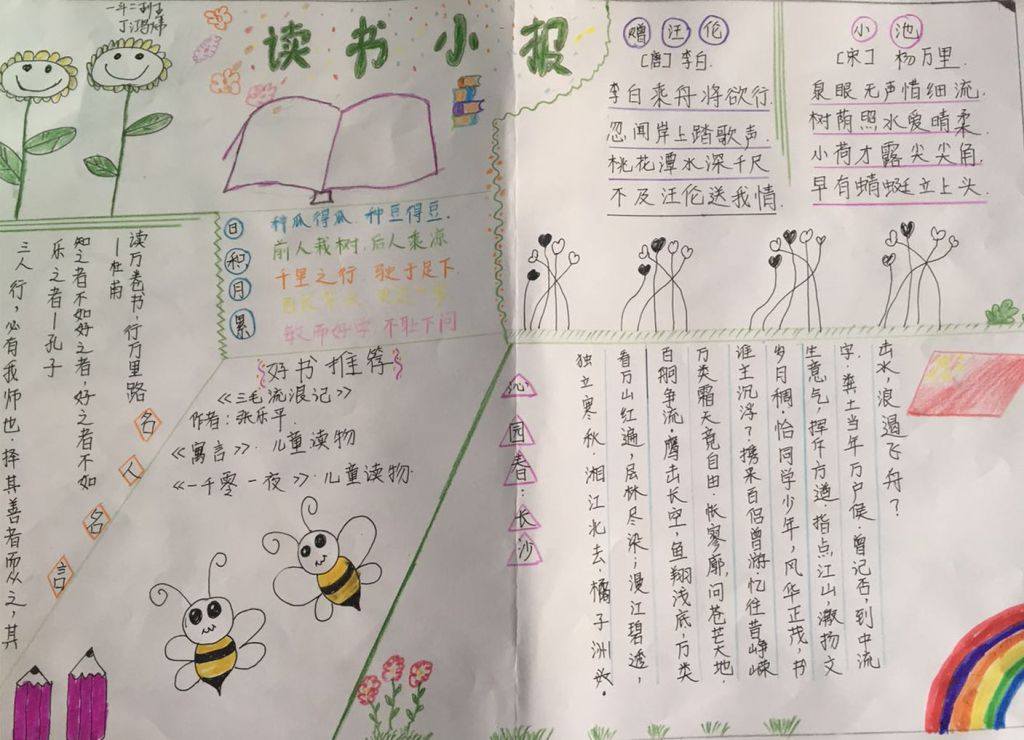 一年二班
读书小报
日积月累
种瓜得瓜 种豆得豆.
前人栽树.后人乘凉
千里之行.驶于足下
敏而好学 不耻下问
读万卷书,行万里路
—杜甫
知之者不如好之者,好之者不如
乐之者—孔子
三人行,必有我师也.择其善者而从之,其
名人名言
好书推荐
《三毛流浪记》
作者:张乐平.
《寓言》.儿童读物
《一千零一夜》.儿童读物.
赠汪伦
[唐]李白.
李白乘舟将欲行.
忽闻岸上踏歌声.
桃花潭水深千尺
不及汪伦送我情.
小池
[宋] 杨万里.
泉眼无声惜细流.
树荫照水爱晴柔.
小荷才露尖尖角.
早有蜻蜓立上头.
沁园春:长沙
独立寒秋.湘江北去.橘子洲
看万山红遍,层林尽染;漫江碧透,
百舸争流.鹰击长空,鱼翔浅底,万类
万类霜天竞自由.怅寥廓,问苍茫大地.
谁主沉浮?携来百侣曾游.忆往昔峥嵘
岁月稠.恰同学少年,风华正茂,书
生意气,挥斥方遒.指点江山,激扬文
字.粪土当年万户侯.曾记否,到中流
击水,浪遏飞舟?